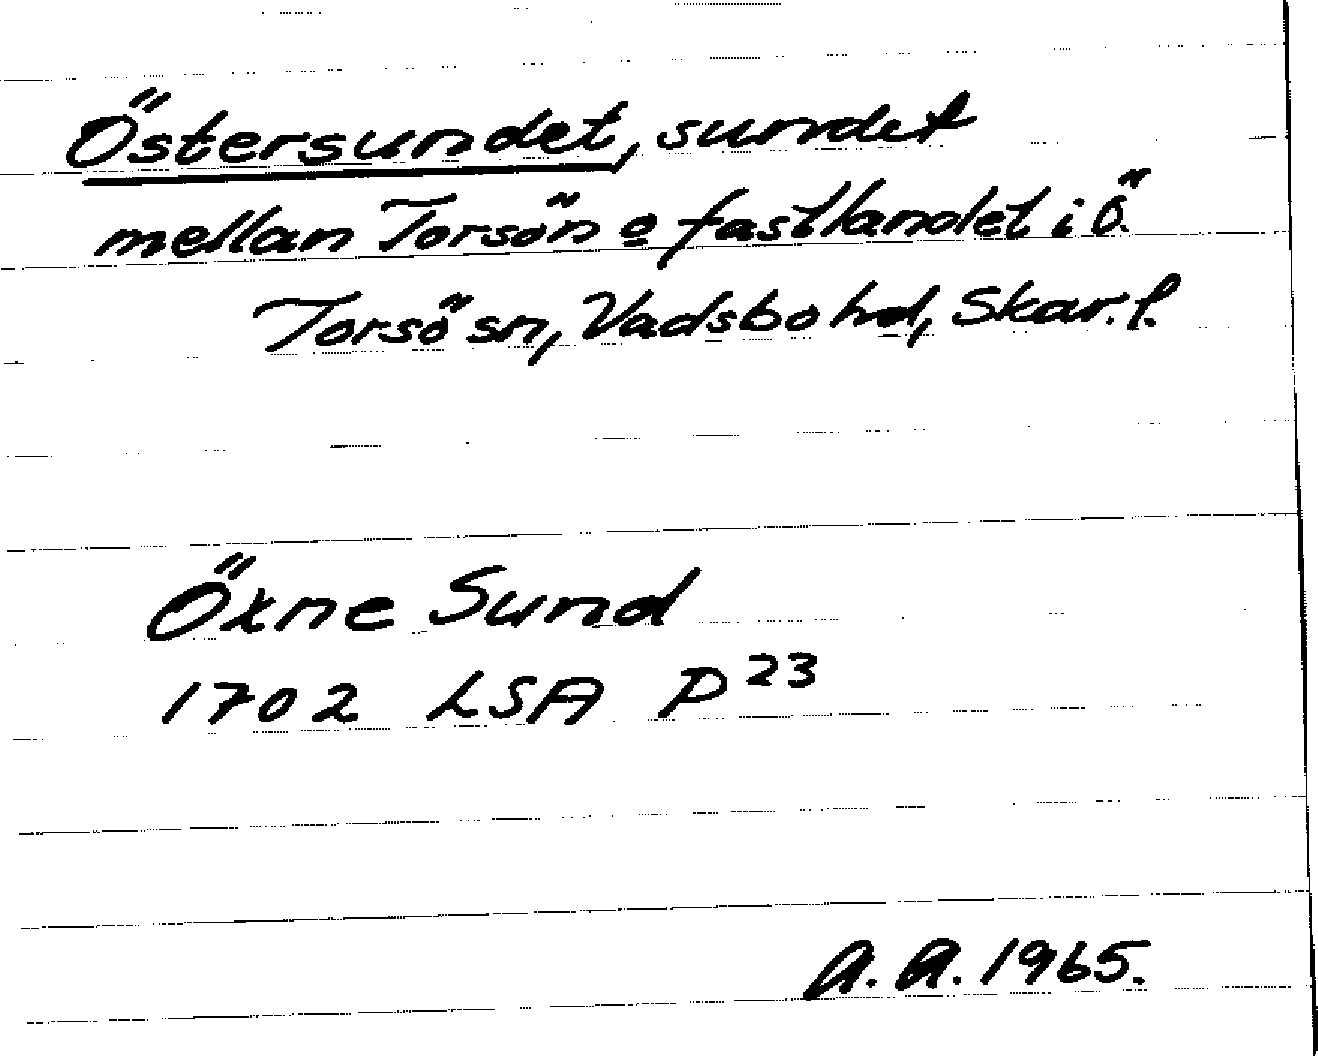 Östersundet, sundet
mellan Torsön o fastlandet i Ö.
Torsö sn, Vadsbo hd, Skar. l.
Öxne Sund
1702 LSA P 23
A. A. 1965.